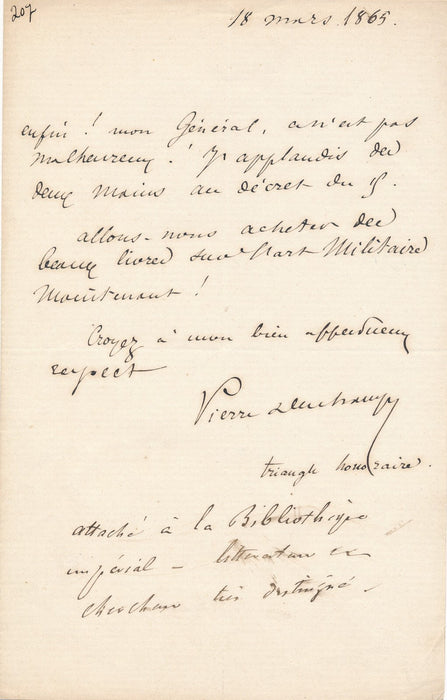 207
18 mars 1865.
enfin ! mon Général, ce n'est pas
malheureux ! J'applaudis des
deux mains au décret du 15.
allons-nous acheter des
beaux livres sur l'art Militaire
Maintenant !
Croyez à mon bien affectueux
respect
Pierre
triangle honoraire.
attaché à la Bibliothèque
impérial _ litterateur et
chercheur très distingué _